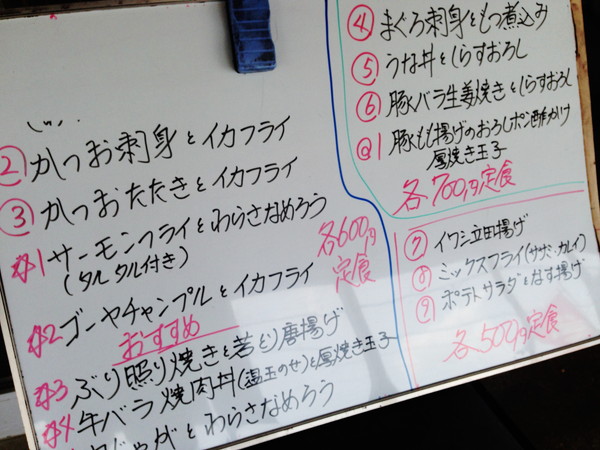 ② かつお刺身とイカフライ
③ かつおたたきとイカフライ
#1 サーモンフライとわらさなめろう
(タルタル付き)
#2 ゴーヤチャンプルとイカフライ
おすすめ
#3 ぶり照り焼きと若どり唐揚げ
#4 牛バラ焼肉丼(温玉のせ)と厚焼き玉子
じゃがとわらさなめろう
各600円
定食
④ まぐろ刺身ともつ煮込み
⑤ うな丼としらすおろし
⑥ 豚バラ生姜焼きとしらすおろし
@1 豚もも揚げのおろしポン酢かけ
厚焼き玉子
各700円定食
⑦ イワシ立田揚げ
⑧ ミックスフライ(サナミ・カレイ)
⑨ ポテトサラダとなす揚げ
各500円定食